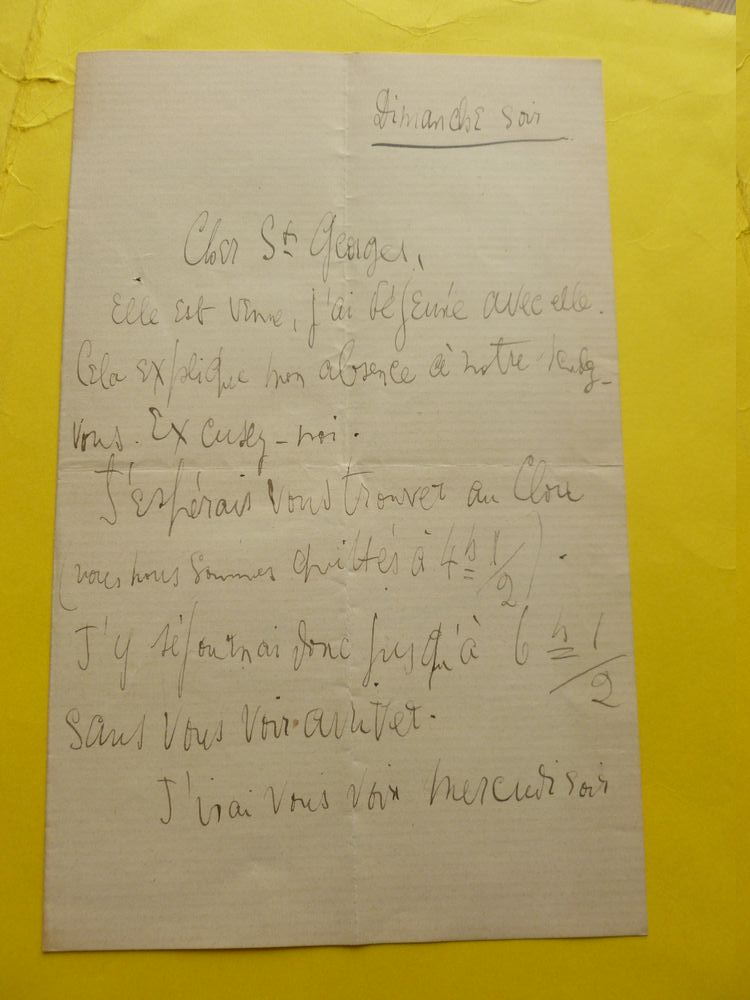 Dimanche soir
Cher St Georges,
Elle est venue, j'ai déjeuné avec elle.
Cela explique mon absence à notre rendez-
vous. Excusez-moi.
J'espérais vous trouver au Clou
(nous nous sommes quittés à 4 h 1/2).
J'y séjournai donc jusqu'à 6 h 1/2
sans vous voir arriver.
J'irai vous voir mercredi soir